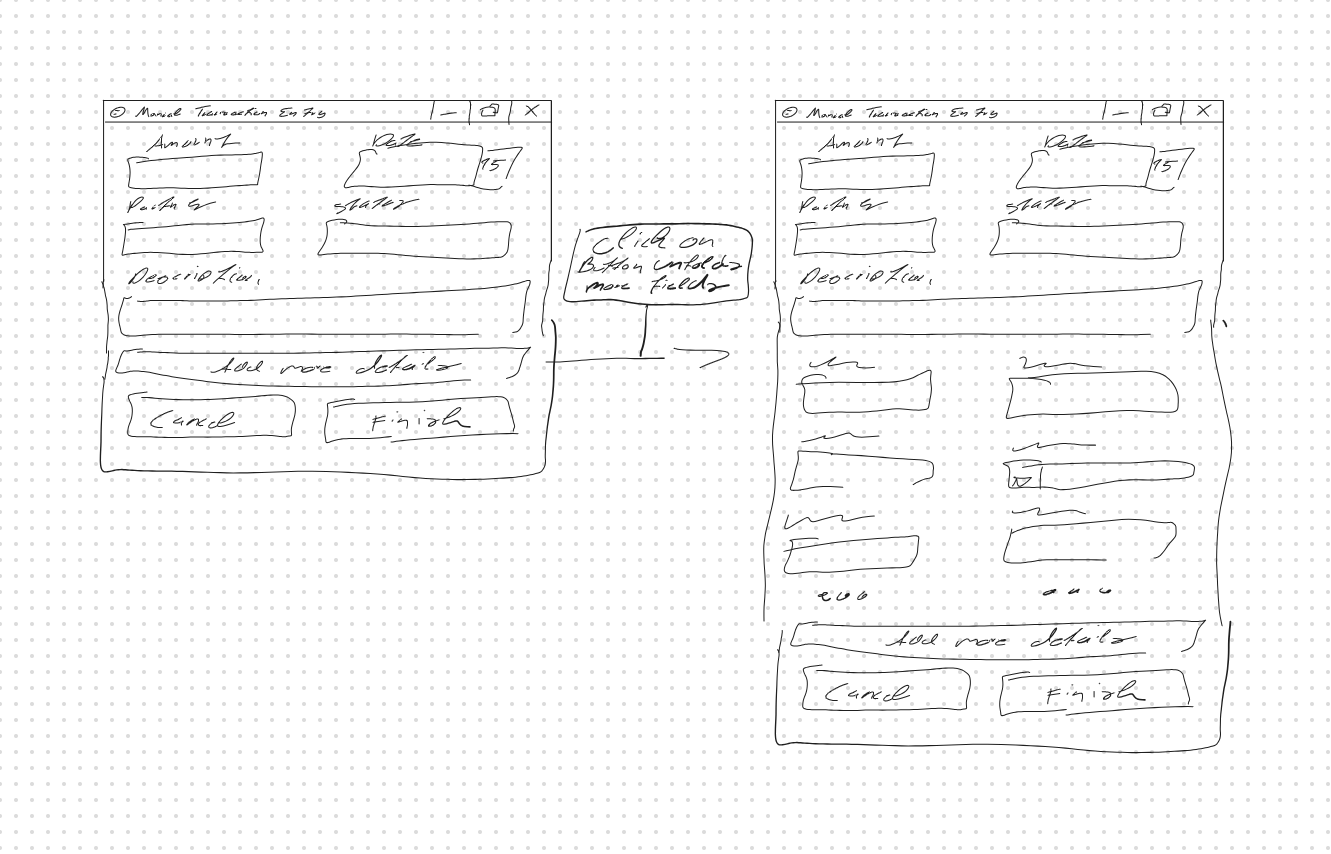 Manual Transaction Entry
Amount
Date
15
Partner
Status
Description
Add more details
Cancel
Finish
Click on
Button unfolds
more fields
Manual Transaction Entry
Amount
Date
15
Partner
Status
Description
Add more details
Cancel
Finish